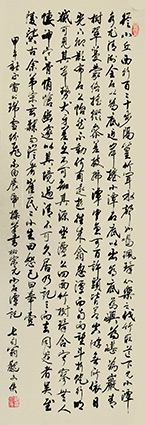 從小丘西行百二十步隔篁竹聞水聲如鳴珮環心樂之伐竹取道下見小潭
水尤清冽全石以為底近岸卷石底以出為坻為嶼為嵁為巖青
樹翠蔓蒙絡搖綴參差披拂潭中魚可百許頭皆若空游無所依日
光下澈影布石上佁然不動俶爾遠逝往來翕忽似與游者相樂潭西南而望斗折蛇行明
滅可見其岸勢犬牙差互不可知其源坐潭上四面竹樹環合寂寥無人
淒神寒骨悄愴幽邃以其境過清不可久居乃記之而去同游者吳武
陵龔古余弟宗玄隸而從者崔氏二小生曰恕己曰奉壹
柳宗元小石潭記
七旬翁